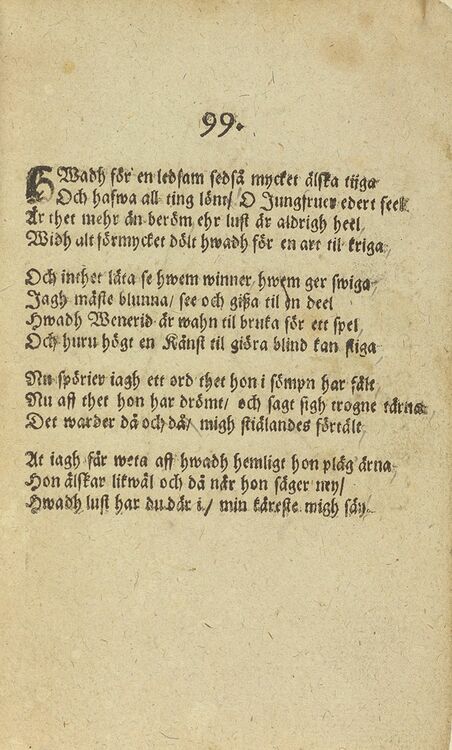 99.
HWadh för en ledsam sedså mycket älska tijga
Och hafwa all ting löntt/ O Jungfruer edert seel
Är thet mehr än beröm ehr lust är aldrigh heel,
Widh alt förmycket dölt hwadh för en art til kriga,
Och inthet läta se hwem winner, hwem ger swiga
Jagh måste blunna/ see och gißa til en deel
Hwadh Wenerid är wahn til bruka för ett spel,
Och huru högt en Känst til giöra blind kan stiga
Nu spörier iagh ett ord thet hon i sömpn har fält,
Nu aff thet hon har drömt/ och sagt sigh trogne tärna
Det warder då och då/ migh stiälandes förtält
At iagh får weta aff hwadh hemligt hon pläg ärna,
Hon älskar likwäl och då när hon säger ney/
Hwadh lust har du där i/ min käreste migh säy.